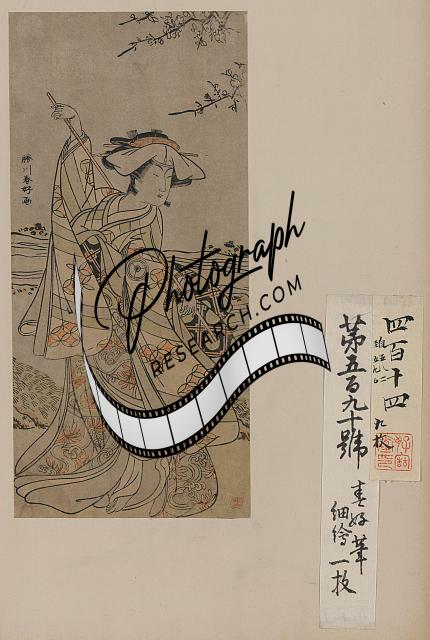 勝川春好画
Photograph
RESEARCH.COM
四百十四
九枚
第五百九十號
春好筆
細繪一枚